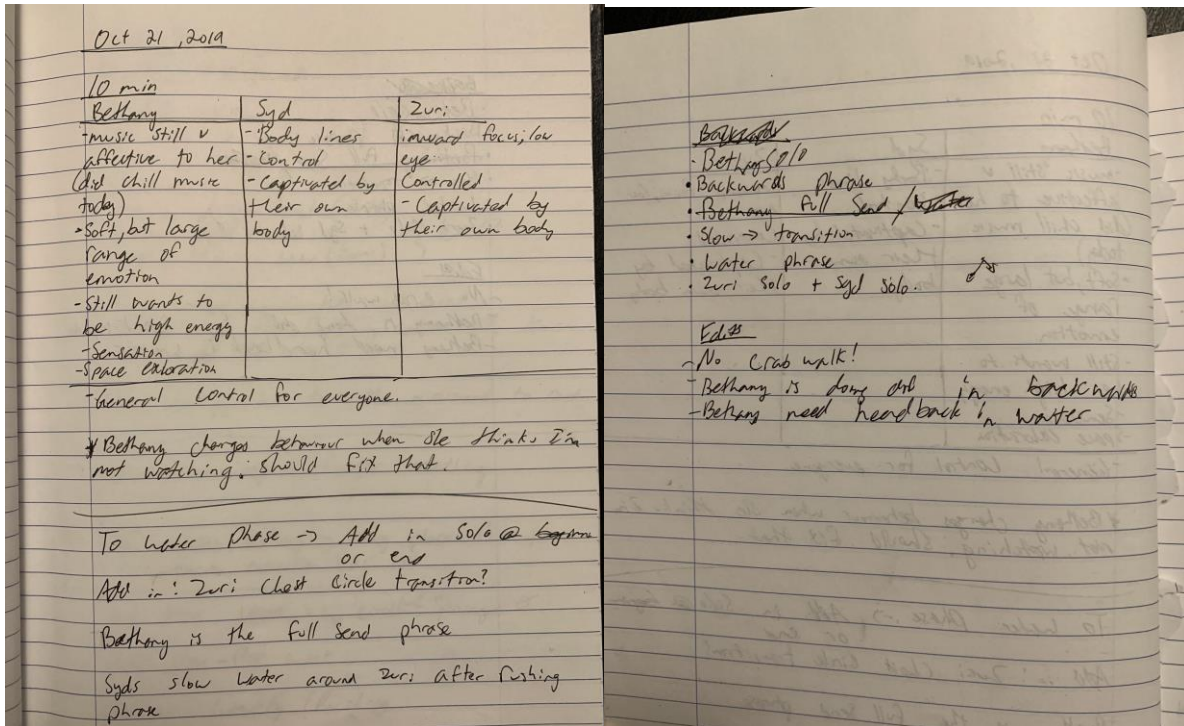 Oct 21, 2019
10 min
Bethany
-music still v
affective to her
(did chill music
today)
-Soft, but large
range of
emotion
-Still wants to
be high energy
-Sensation
-Space exloration
Syd
-Body lines
-Control
-Captivated by
their own
body
Zuri
inward focus, low
eye
Controlled
-Captivated by
their own body
-General control for everyone.
* Bethany changes behaviour when she thinks I'm
not watching. Should fix that.
To water phase -> Add in solo @
or end
Add in: Zuri Chest Circle transition?
Bethany is the full send phrase
Syds slow water around Zuri after
phrase
Backwards
· Bethany Solo
· Backwards phrase
· Bethany full Send / Water
· Slow -> transition
· water phrase
· Zuri solo + Syd solo.
Edits
-No Crab walk!
-Bethany is doing in backwards
-Bethany need head back in water